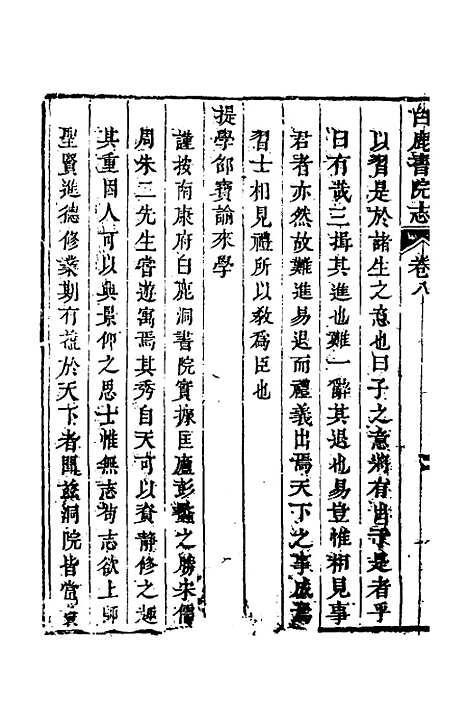 白鹿書院志 卷八
以習是於諸生之意也曰子之意將有出于是者乎
曰有哉三揖其進也難一辭其退也易豈惟相見事
君者亦然故難進易退而禮義出焉天下之事成焉
習士相見禮所以敎爲臣也
提學邵寶諭來學
謹按南康府白鹿洞書院實據匡廬彭蠡之勝宋儒
周朱二先生嘗遊寓焉其秀自天可以資靜修之趣
其重因人可以興景仰之思士惟無志茍志欲上師
聖賢進德修業期有益於天下者聞茲洞院皆當裹